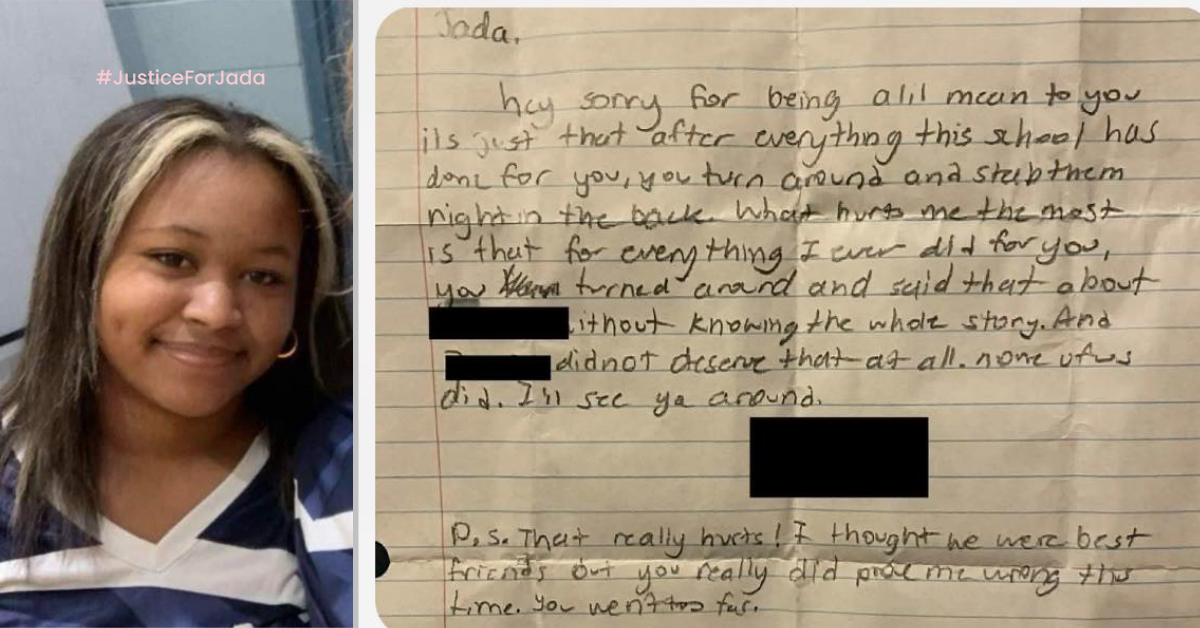 #JusticeForJada
Jada,
hey sorry for being alil mean to you
its just that after everything this school has
done for you, you turn around and stab them
right in the back. What hurts me the most
is that for everything I ever did for you,
you turned around and said that about
ithout knowing the whole story. And
did not deserve that at all. none of us
did. I'll see ya around.
P.S. That really hurts! I thought we were best
friends but you really did prove me wrong this
time. You went too far.